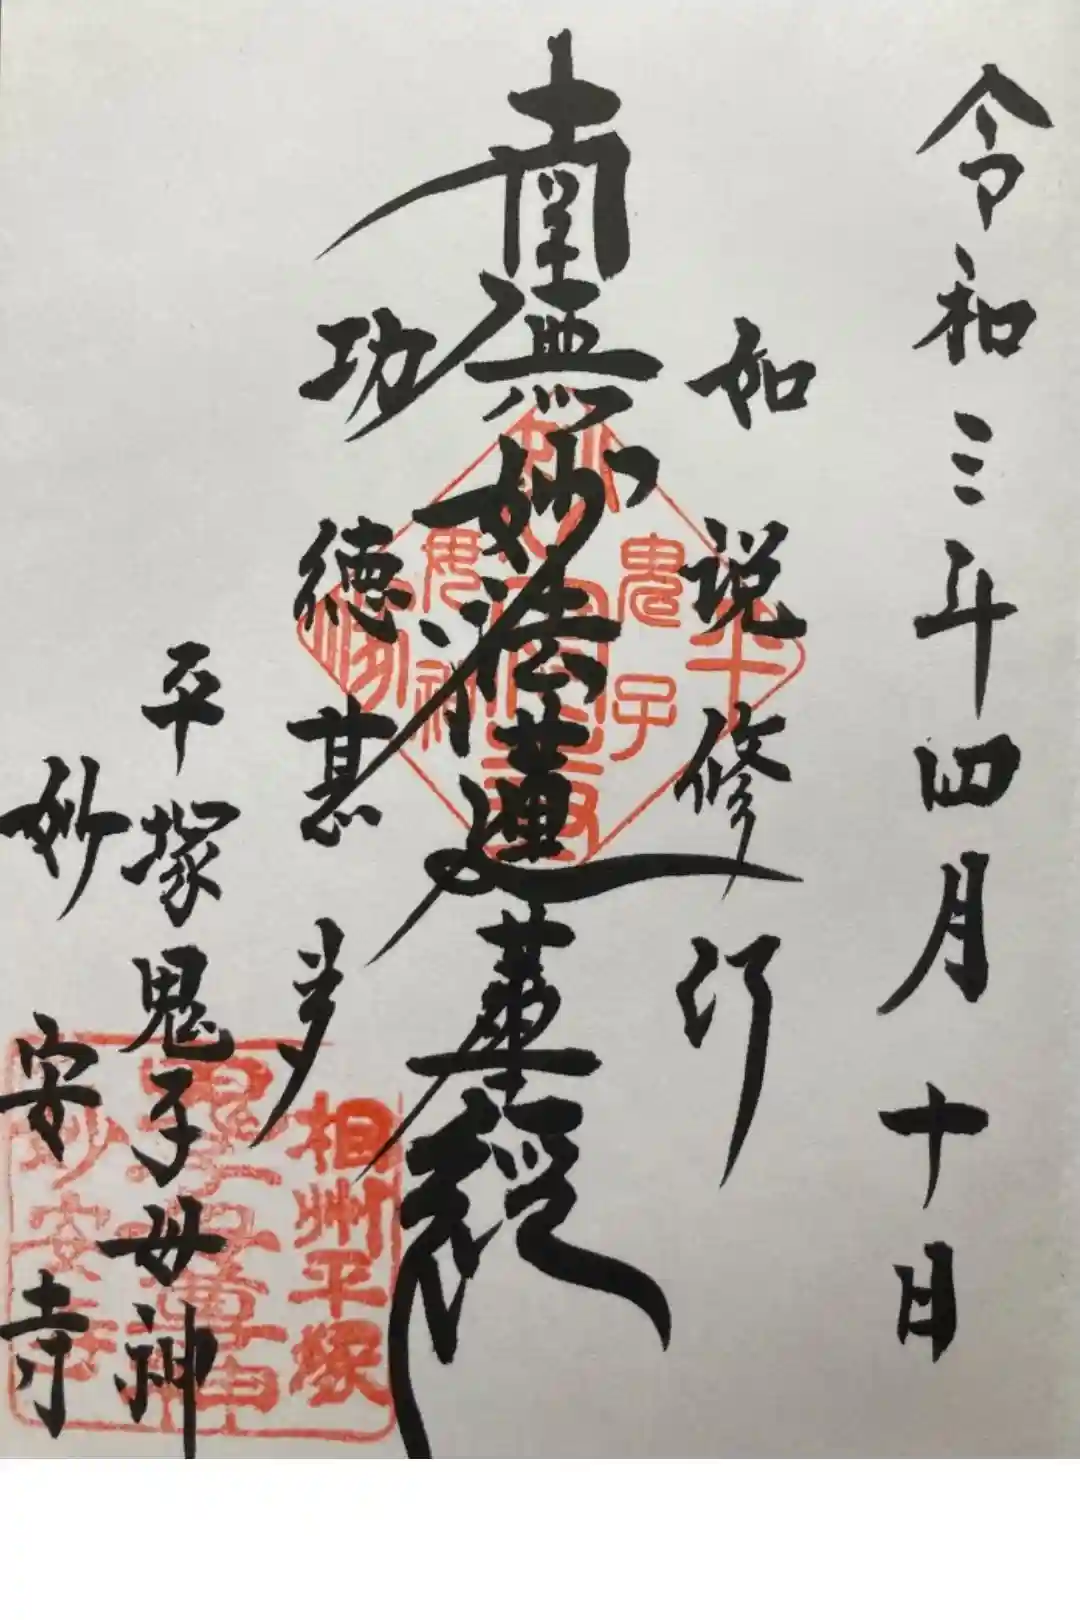 令和三年四月十日
如説修行
南無妙法蓮華経
功徳甚多
平塚鬼子母神
妙安寺
鬼子
母神
相州平塚
鬼子母尊神
妙安寺